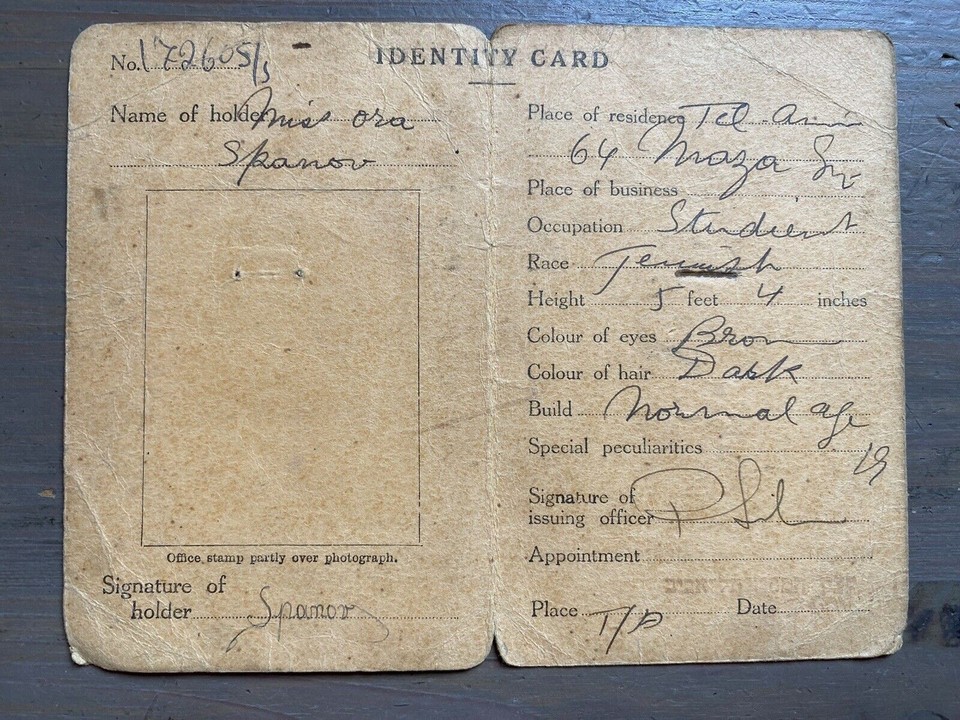 IDENTITY CARD
No. 172605/s
Name of holder Miss Ora
Spanov
Office stamp partly over photograph.
Signature of
holder Spanov
Place of residence Tel-Aviv
64 Maza
Place of business
Occupation Student
Race Jewish
Height 5 feet 4 inches
Colour of eyes Brown
Colour of hair Dark
Build Normal age
19
Special peculiarities
Signature of
issuing officer
Appointment
Place Date